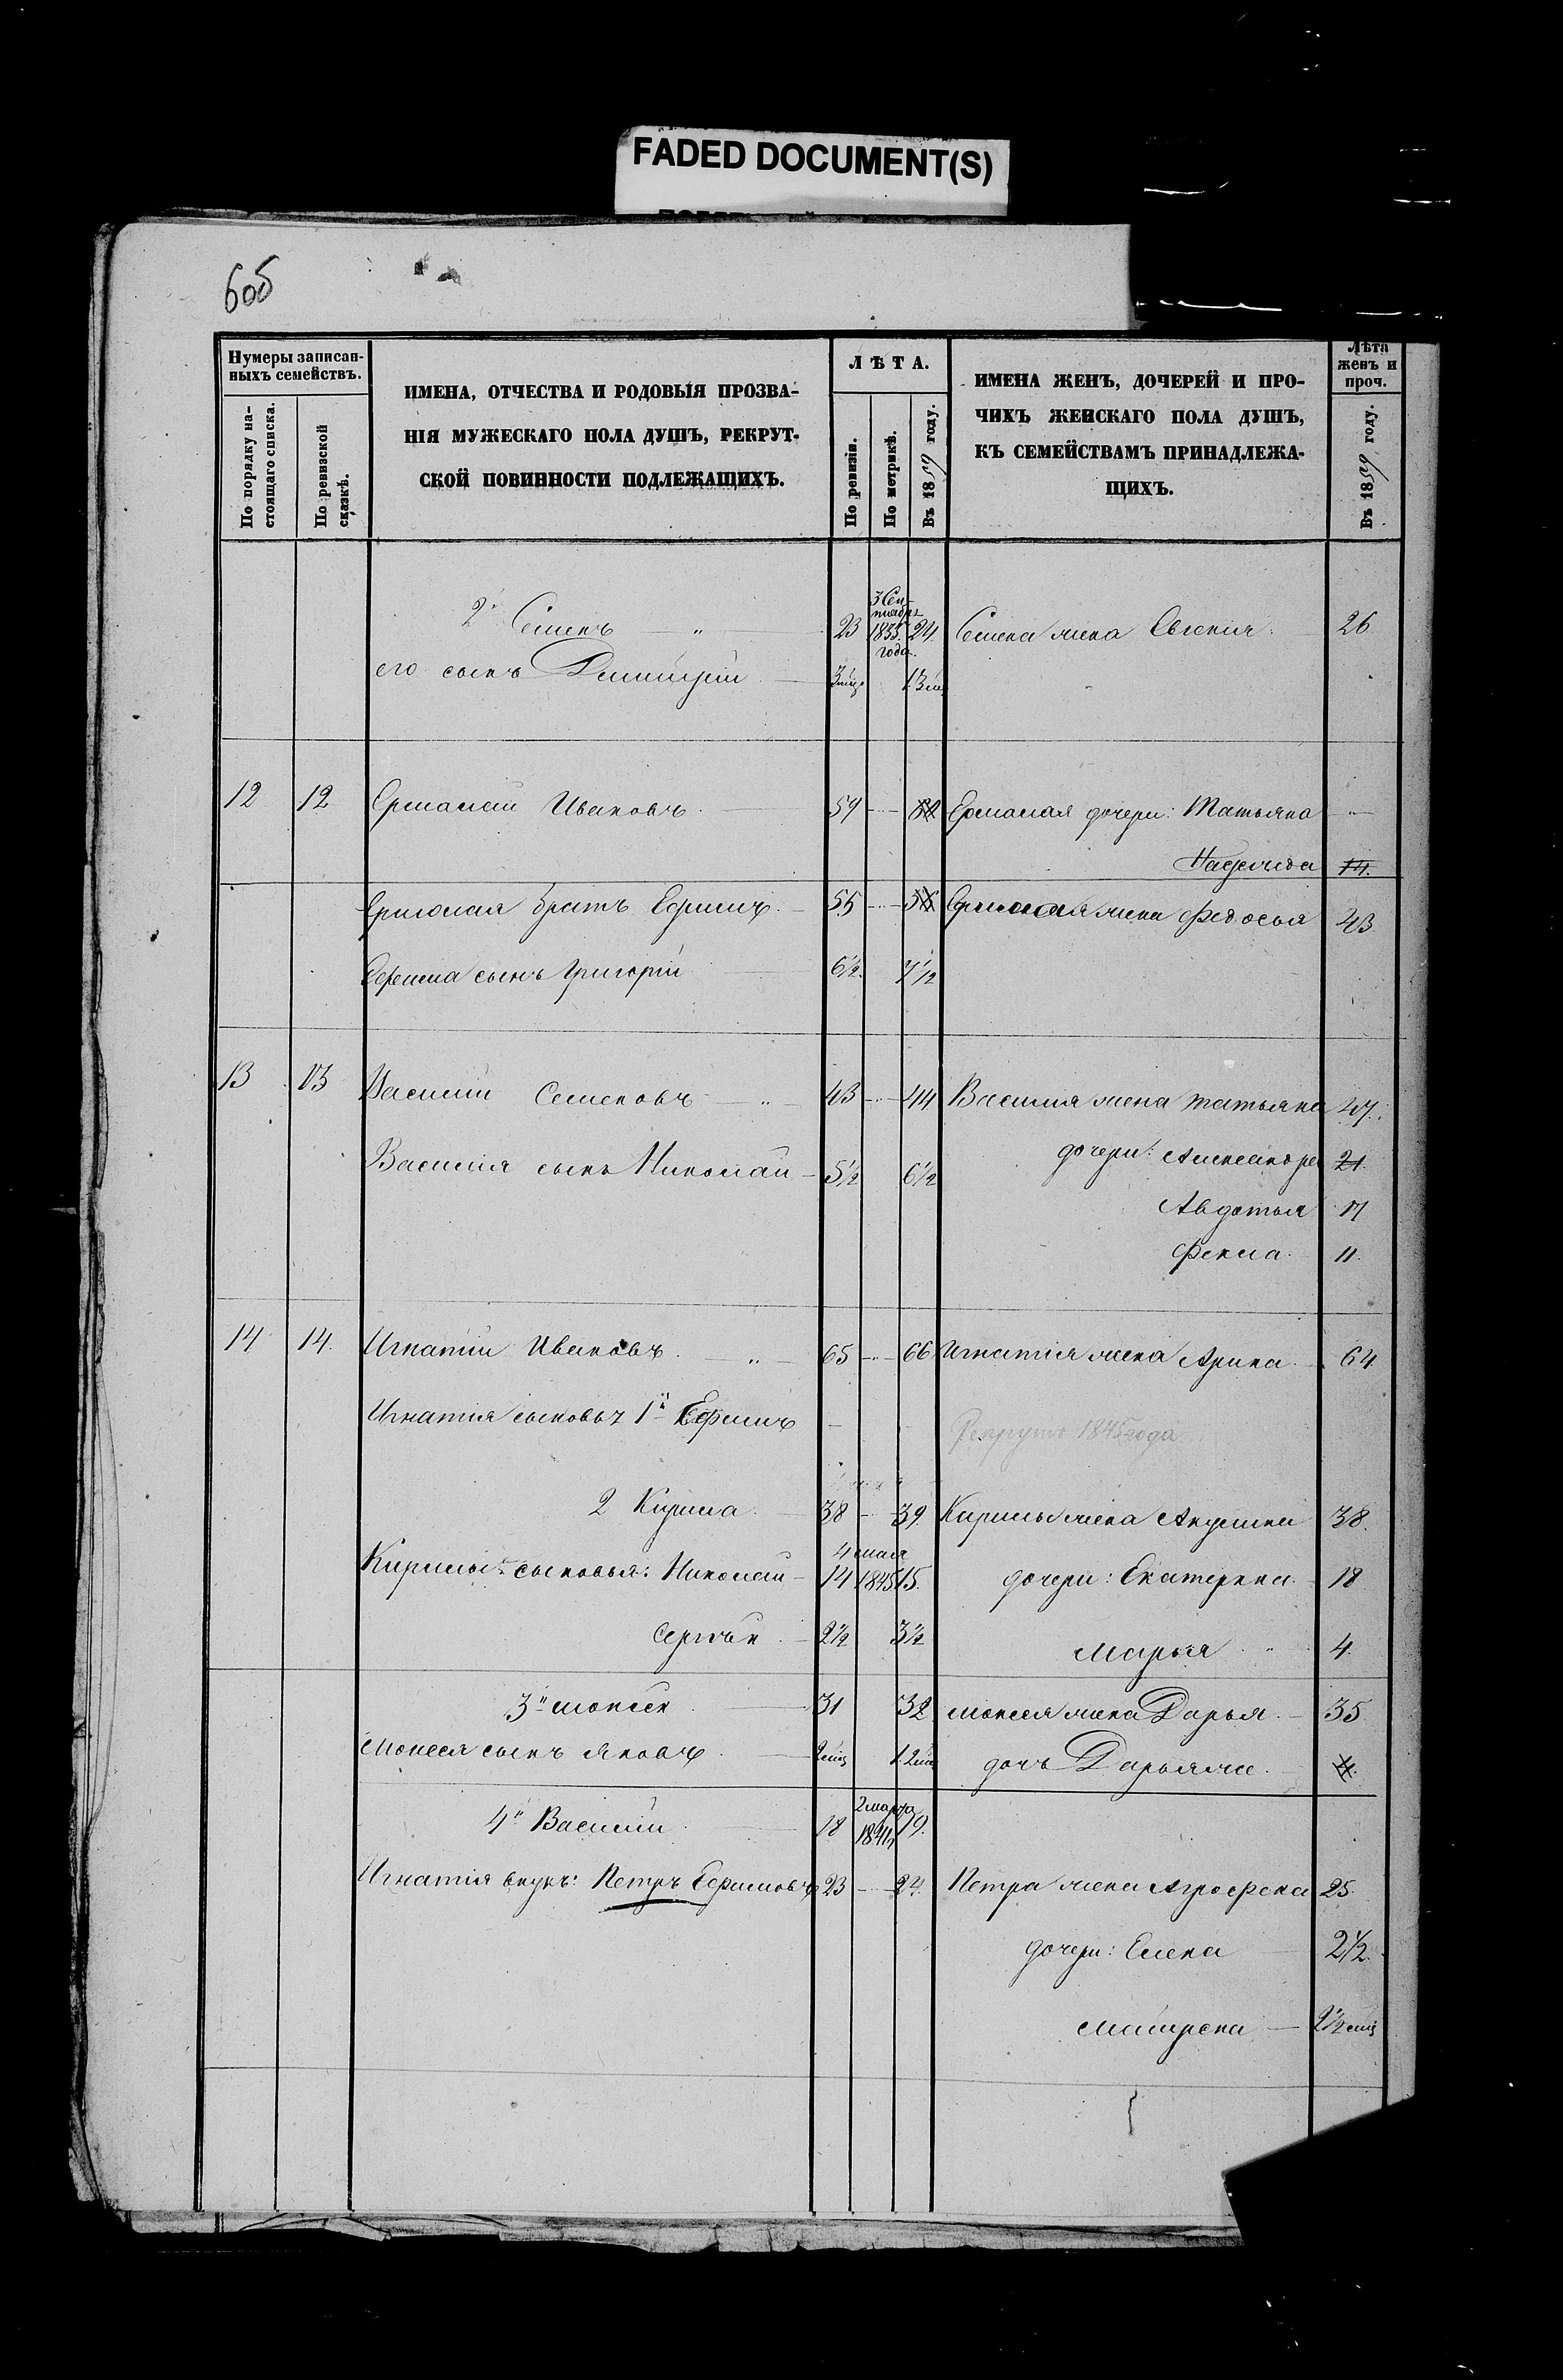 FADED DOCUMENT(S)
60б
Нумеры записан-
ныхъ семействъ.
По порядку на-
стоящаго списка.
По ревизской
сказкѣ.
ИМЕНА, ОТЧЕСТВА И РОДОВЫЯ ПРОЗВА-
НІЯ МУЖЕСКАГО ПОЛА ДУШЪ, РЕКРУТ-
СКОЙ ПОВИННОСТИ ПОДЛЕЖАЩИХЪ.
ЛѢТА.
По ревизіи.
По метрикѣ.
Въ 1859 году.
ИМЕНА ЖЕНЪ, ДОЧЕРЕЙ И ПРО-
ЧИХЪ ЖЕНСКАГО ПОЛА ДУШЪ,
КЪ СЕМЕЙСТВАМЪ ПРИНАДЛЕЖА-
ЩИХЪ.
Лѣта
женъ и
проч.
Въ 1859 году.
2й Семенъ — „ 23 3 Сен-
тября
1835 24. Семена жена Евгенія. 26
года.
его сынъ Димитрій — 3 мѣс. 13 м.
12 12 Ермолай Ивановъ. — 59 — Ермолая дочери: Татьяна — „ —
Надежда 14.
Ермолая братъ Ефимъ. — 55 — Ермолая жена Федосья 43
Ефима сынъ Григорій — 6½. 7½
13 13 Василій Семеновъ — „ — 43 — 44 Василія жена Татьяна 47.
Василія сынъ Николай — 5½ 6½ дочери: Александра 21.
Авдотья 17
Фекла. 11.
14 14. Игнатій Ивановъ. — „ — 65 — 66 Игнатія жена Арина. 64
Игнатія сыновья 1й Ефимъ — Рекрутъ 1845 года
2 Кирила. — 38 — 39. Кирилы жена Акулина 38.
Кирилы сыновья: Николай — 14 4 мая
1845 15. дочери: Екатерина. 18
Сергѣй. — 2½ 3½ Марья „ 4.
3й Моисей — 31 32 Моисея жена Дарья. — 35
Моисея сынъ Яковъ. — 2 мѣс 1.2 м дочь Дарья 4.
4й Василій. — 18 2 марта
1841 19.
Игнатія внукъ: Петръ Ефимовъ 23 — 24. Петра жена Агрофена 25.
дочери: Елена — 2½.
Матрена — 2½ мѣс